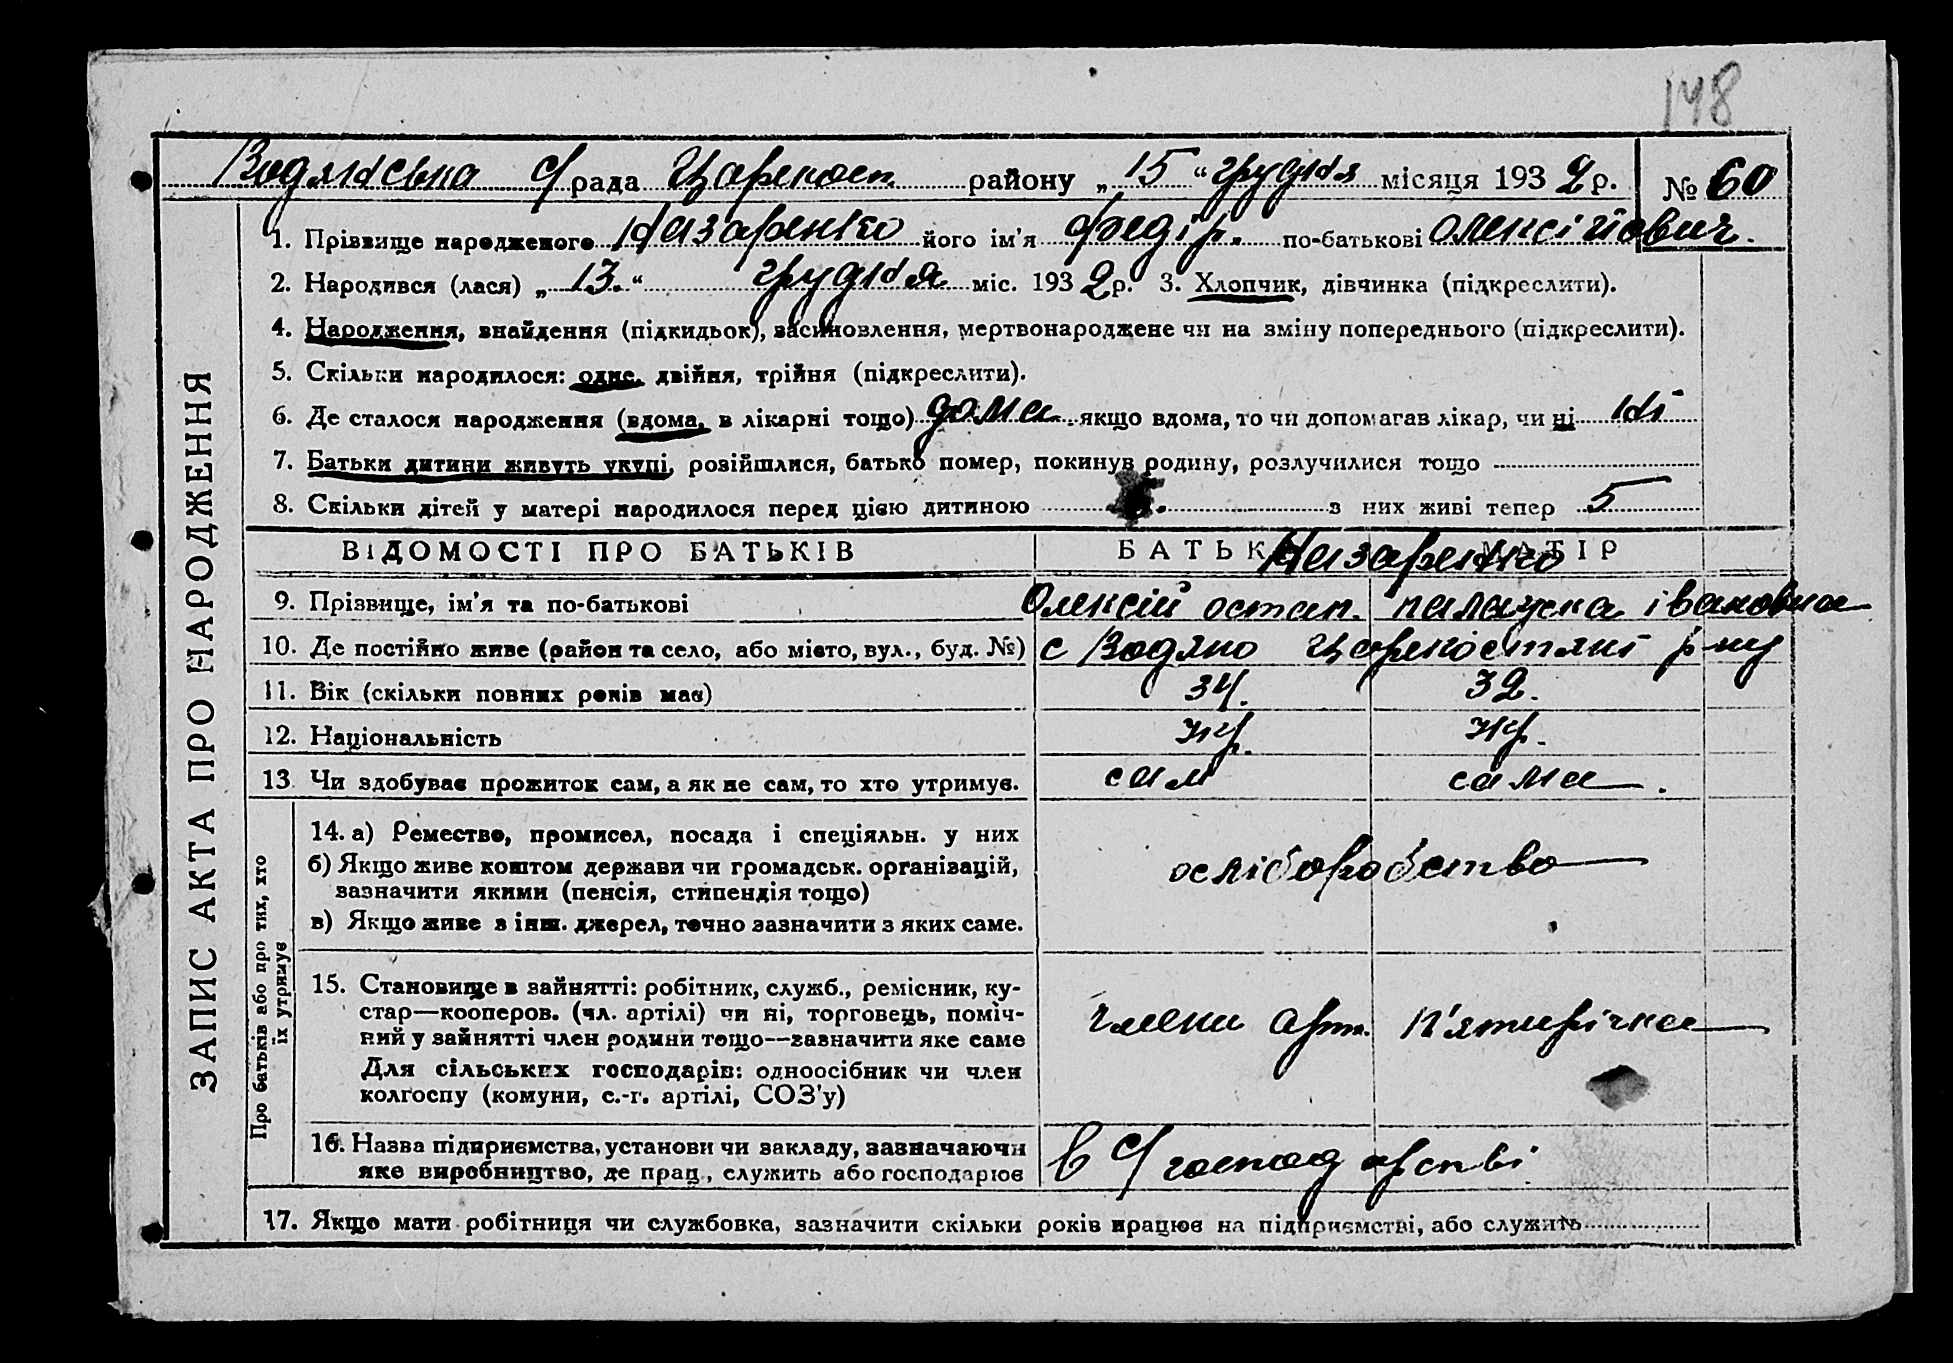 148
Водянська с/рада Царекост. району „15“ грудня місяця 1932 р. № 60
1. Прізвище народженого Назаренко його ім’я Федір. по-батькові Олексійович.
2. Народився (лася) „13.“ грудня міс. 1932 р. 3. Хлопчик, дівчинка (підкреслити).
4. Народження, знайдення (підкидьок), засиновлення, мертвонароджене чи на зміну попереднього (підкреслити).
5. Скільки народилося: одне, двійня, трійня (підкреслити).
6. Де сталося народження (вдома, в лікарні тощо) дома якщо вдома, то чи допомагав лікар, чи ні ні
7. Батьки дитини живуть укупі, розійшлися, батько помер, покинув родину, розлучилися тощо
8. Скільки дітей у матері народилося перед цією дитиною з них живі тепер 5
ЗАПИС АКТА ПРО НАРОДЖЕННЯ
ВІДОМОСТІ ПРО БАТЬКІВ БАТЬКО МАТІР
Назаренко
9. Прізвище, ім’я та по-батькові Олексій Остап. Палажка Івановна
10. Де постійно живе (район та село, або місто, вул., буд. №) с Водяно Царекостянт р-ну
11. Вік (скільки повних років має) 34. 32.
12. Національність укр. укр.
13. Чи здобуває прожиток сам, а як не сам, то хто утримує. сам сама.
Про батьків або про тих, хто їх утримує
14. а) Ремество, промисел, посада і спеціяльн. у них
б) Якщо живе коштом держави чи громадськ. організацій,
зазначити якими (пенсія, стипендія тощо)
в) Якщо живе з інш. джерел, точно зазначити з яких саме.
хліборобство
15. Становище в зайнятті: робітник, служб., ремісник, ку-
стар—кооперов. (чл. артілі) чи ні, торговець, поміч-
ний у зайнятті член родини тощо—зазначити яке саме
Для сільських господарів: одноосібник чи член
колгоспу (комуни, с.-г. артілі, СОЗ’у)
члени арт. П’ятирічка
16. Назва підприємства, установи чи закладу, зазначаючи
яке виробництво, де прац., служить або господарює
в с/господарстві
17. Якщо мати робітниця чи службовка, зазначити скільки років працює на підприємстві, або служить